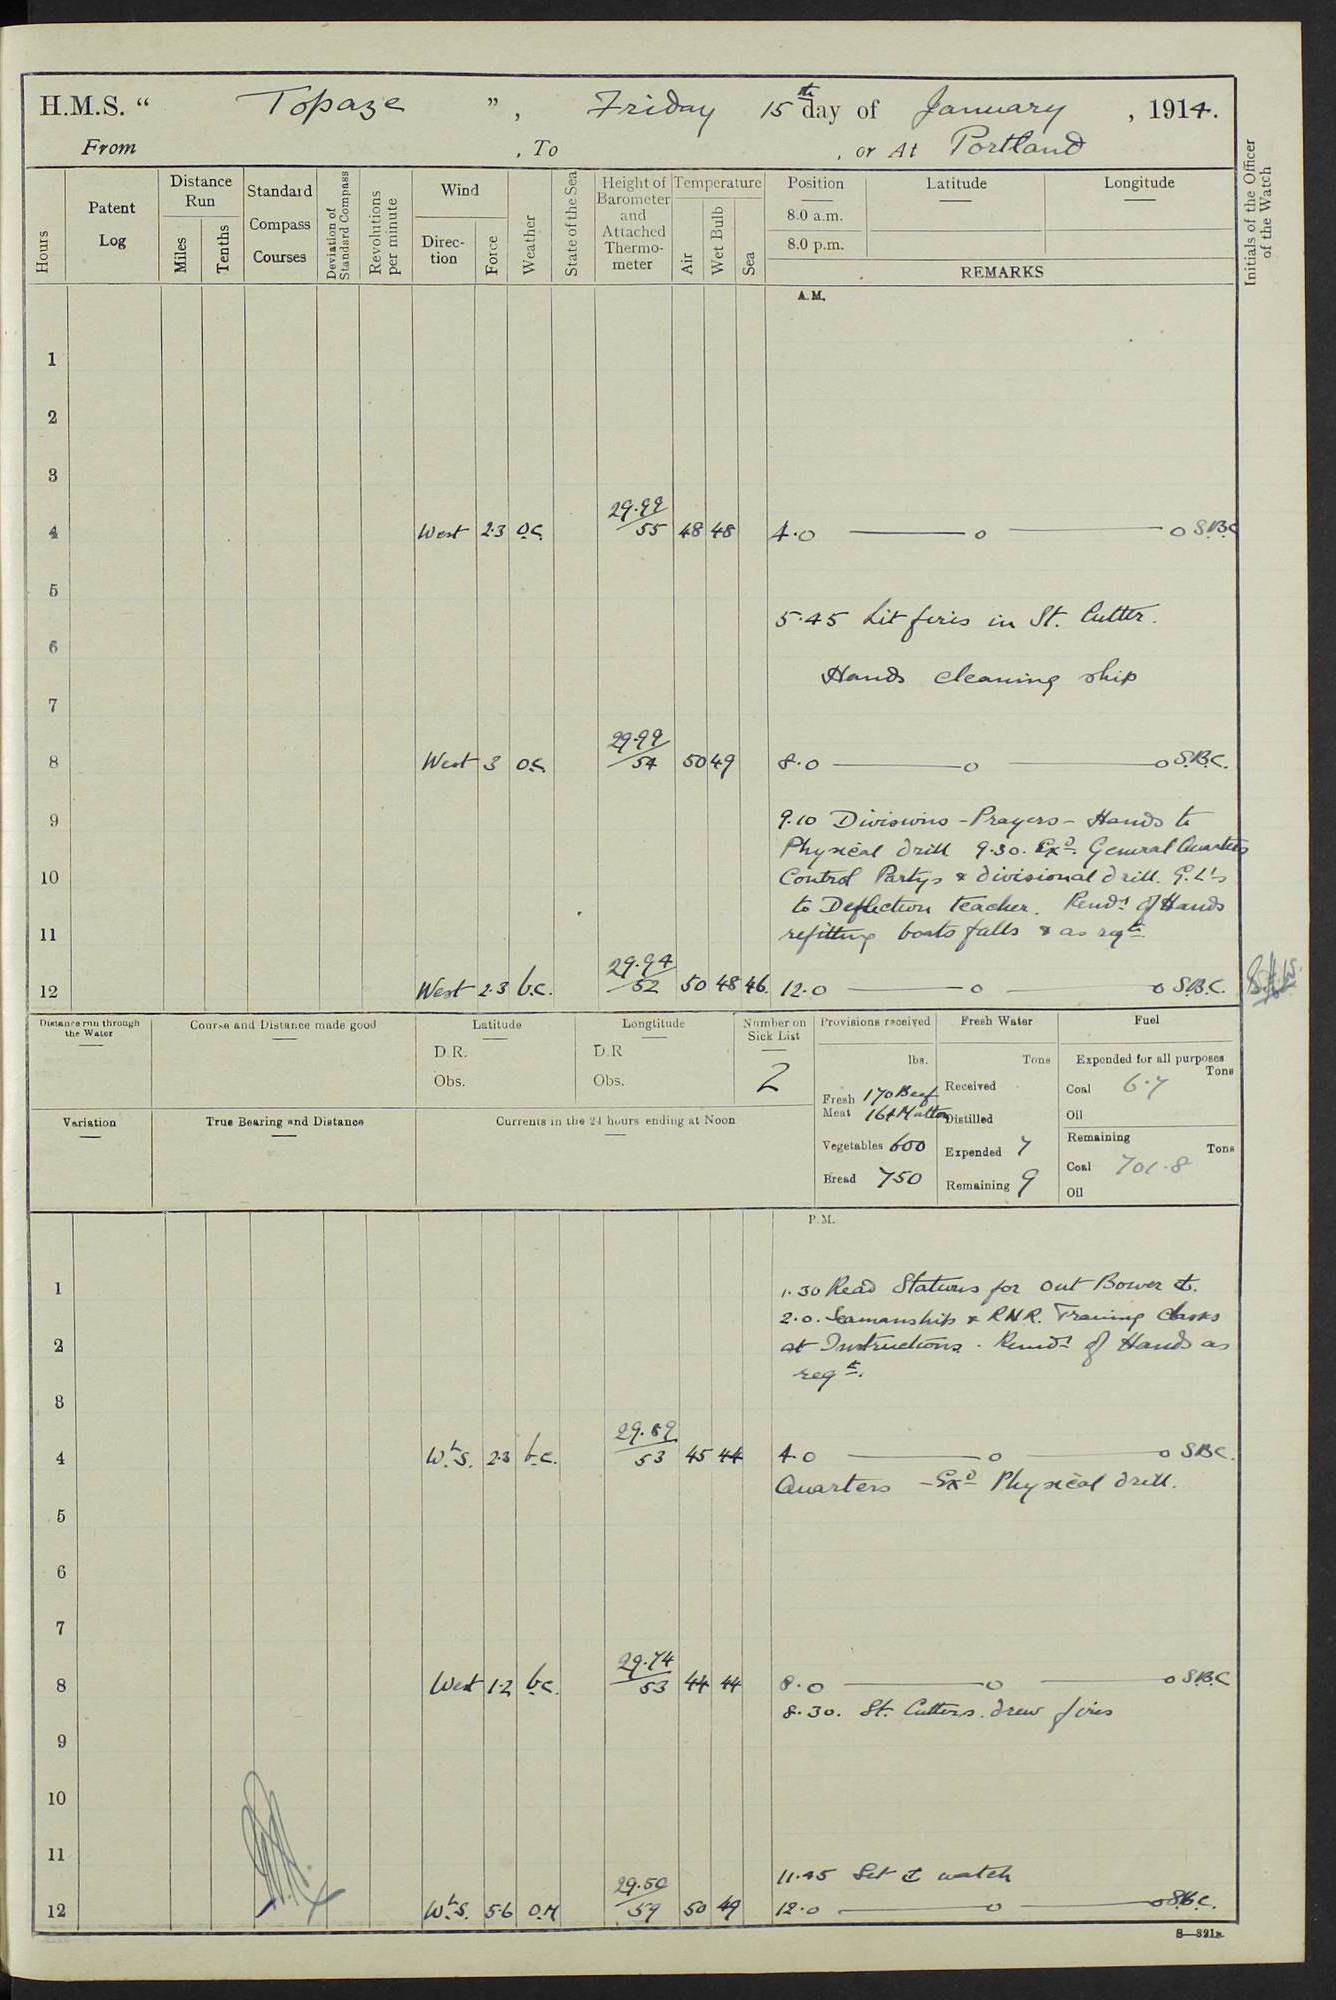 H.M.S. “ Topaze ” , Friday 15th day of January , 1914.
From , To , or At Portland
Hours
Patent Log
Distance Run
Miles
Tenths
Standard Compass Courses
Deviation of Standard Compass
Revolutions per minute
Wind
Direc-tion
Force
Weather
State of the Sea
Height of Barometer and Attached Thermo-meter
Temperature
Air
Wet Bulb
Sea
Position
8.0 a.m.
8.0 p.m.
Latitude
Longitude
REMARKS
Initials of the Officer of the Watch
A.M.
1
2
3
4 West 2·3 o.c. 29·99/55 48 48 4·0 — o — o S.B.C
5
5·45 Lit fires in St. Cutter.
6
Hands cleaning ship
7
8 West 3 o.c. 29·99/54 50 49 8·0 — o — o S.B.C.
9 9·10 Divisions - Prayers - Hands to
Physical drill 9·30. Exd. General Quarters
10 Control Partys & divisional drill. G.L's
to Deflection teacher. Remdr of Hands
11 refitting boats falls & as reqte.
12 West 2·3 b.c. 29·94/52 50 48 46. 12·0 — o — o S.B.C.
Distance run through the Water
Course and Distance made good
Latitude
D.R.
Obs.
Longtitude
D.R
Obs.
Number on Sick List
2
Provisions received
lbs.
Fresh Meat 170 Beef
164 Mutton
Vegetables 600
Bread 750
Fresh Water
Tons
Received
Distilled
Expended 7
Remaining 9
Fuel
Expended for all purposes
Tons
Coal 6·7
Oil
Remaining
Tons
Coal 701·8
Oil
Variation
True Bearing and Distance
Currents in the 24 hours ending at Noon
P.M.
1 1·30 Read Stations for out Bower &c.
2·0. Seamanship & R.N.R. Training Class
2 at Instructions. Remdr of Hands as
reqte.
3
4 W.b.S. 2·3 b.c. 29·89/53 45 44 4·0 — o — o S.B.C.
Quarters - Exd Physical drill.
5
6
7
8 West 1·2 b.c. 29·74/53 44 44 8·0 — o — o S.B.C
8·30. St. Cutters. drew fires
9
10
11
11·45 Set watch
12 W.b.S. 5·6 o.m 29·50/59 50 49 12·0 — o — o S.B.C.
S—321B.